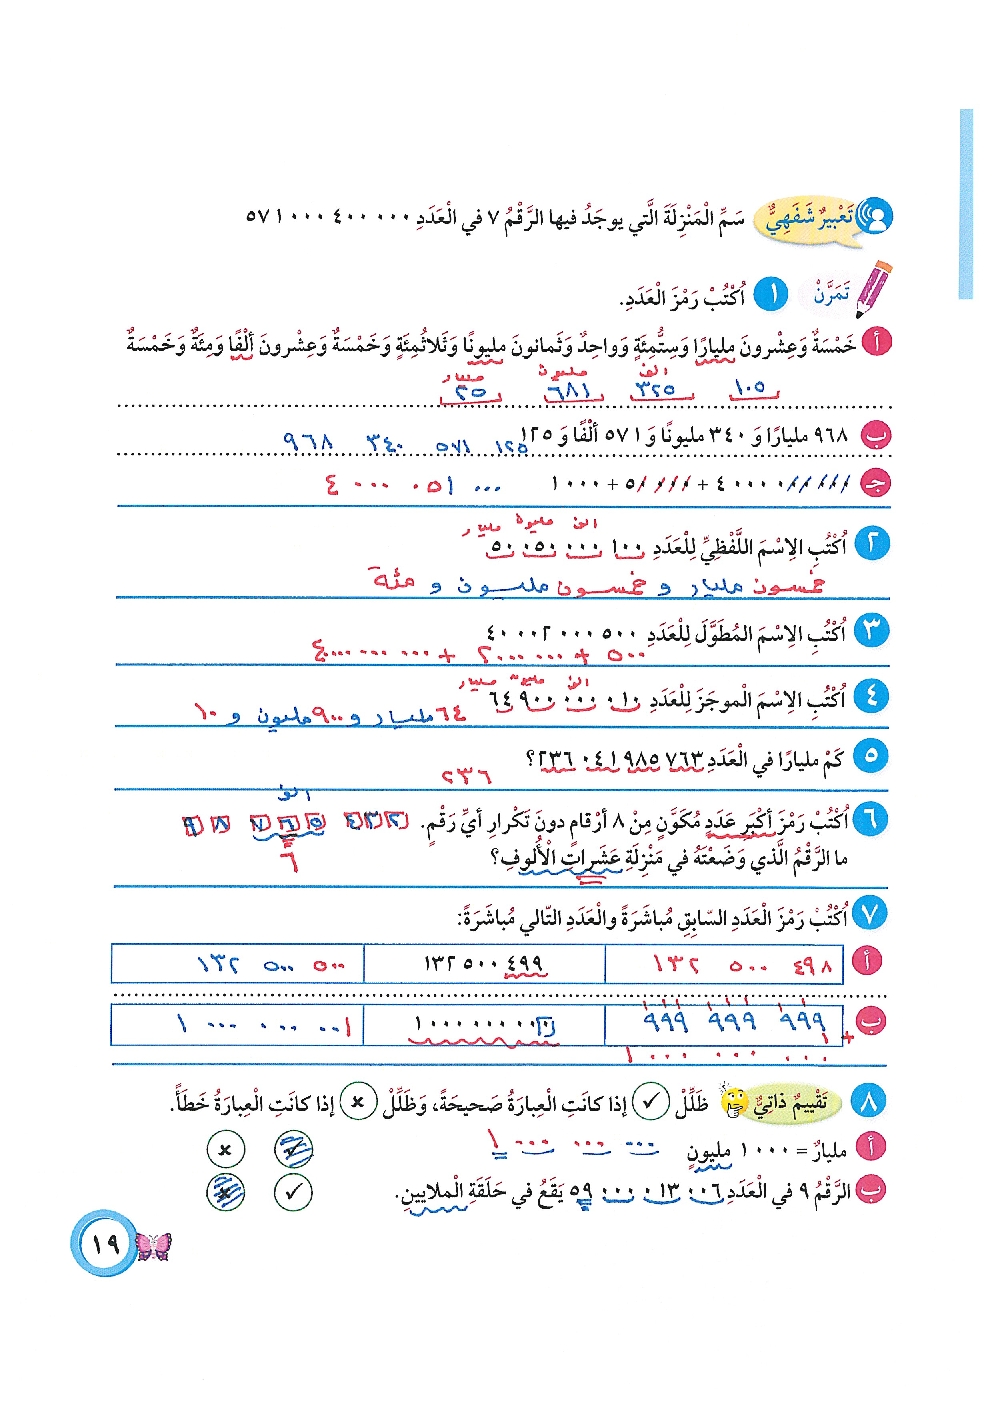 تَعْبيرٌ شَفَهِيٌّ سَمِّ الْمَنْزِلَةَ الَّتي يوجَدُ فيها الرَّقْمُ ٧ في الْعَدَدِ ٥٧١ ٠٠٠ ٤٠٠ ٠٠٠
تَمَرَّنْ ١ اُكْتُبْ رَمْزَ الْعَدَدِ.
أ خَمْسَةٌ وَعِشْرونَ مليارًا وَسِتُّمِئَةٍ وَواحِدٌ وَثَمانونَ مليونًا وَثَلاثُمِئَةٍ وَخَمْسَةٌ وَعِشْرونَ أَلْفًا وَمِئَةٌ وَخَمْسَةٌ
مليار مليون الف
٢٥ ٦٨١ ٣٢٥ ١٠٥
ب ٩٦٨ مليارًا وَ ٣٤٠ مليونًا وَ ٥٧١ أَلْفًا وَ ١٢٥
٩٦٨ ٣٤٠ ٥٧١ ١٢٥
جـ ١٠٠٠ + ٥ + ٤٠٠٠٠
٤ ٠٠٠ ٠٥١ ٠٠٠
مليار مليون الف
٢ اُكْتُبِ الاِسْمَ اللَّفْظِيَّ لِلْعَدَدِ ٥٠ ٠٥٠ ٠٠٠ ١٠٠
خمسون مليار و خمسون مليون و مئة
٣ اُكْتُبِ الاِسْمَ المُطَوَّلَ لِلْعَدَدِ ٤٠ ٠٠٢ ٠٠٠ ٥٠٠
٤٠ ٠٠٠ ٠٠٠ ٠٠٠ + ٢ ٠٠٠ ٠٠٠ + ٥٠٠
مليار مليون الف
٤ اُكْتُبِ الاِسْمَ الموجَزَ لِلْعَدَدِ ٦٤ ٩٠٠ ٠٠٠ ٠١٠
٦٤ مليار و ٩٠٠ مليون و ١٠
٥ كَمْ مليارًا في الْعَدَدِ ٢٣٦ ٠٤١ ٩٨٥ ٧٦٣؟
٢٣٦
الف
٦ اُكْتُبْ رَمْزَ أَكْبَرِ عَدَدٍ مُكَوَّنٍ مِنْ ٨ أَرْقامٍ دونَ تَكْرارِ أَيِّ رَقْمٍ. ٩ ٨ ٧ ٦ ٥ ٤ ٣ ٢
ما الرَّقْمُ الَّذي وَضَعْتَهُ في مَنْزِلَةِ عَشَراتِ الْأُلوفِ؟ ٦
٧ اُكْتُبْ رَمْزَ الْعَدَدِ السّابِقِ مُباشَرَةً والْعَدَدِ التّالي مُباشَرَةً:
أ ١٣٢ ٥٠٠ ٤٩٨ ١٣٢ ٥٠٠ ٤٩٩ ١٣٢ ٥٠٠ ٥٠٠
ب ٩٩٩ ٩٩٩ ٩٩٩ ١ ٠٠٠ ٠٠٠ ٠٠٠ ١ ٠٠٠ ٠٠٠ ٠٠١
+ ١
١ ٠٠٠ ٠٠٠ ٠٠٠
٨ تَقْييمٌ ذاتِيٌّ ظَلِّلْ ✓ إذا كانَتِ الْعِبارَةُ صَحيحَةً، وَظَلِّلْ × إذا كانَتِ الْعِبارَةُ خَطَأً.
أ مليارٌ = ١٠٠٠ مليونٍ ١ ٠٠٠ ٠٠٠ ٠٠٠ ✓ ×
ب الرَّقْمُ ٩ في الْعَدَدِ ٥٩ ٠٠٠ ٠١٣ ٠٠٦ يَقَعُ في حَلَقَةِ الْملايينِ. ✓ ×
١٩